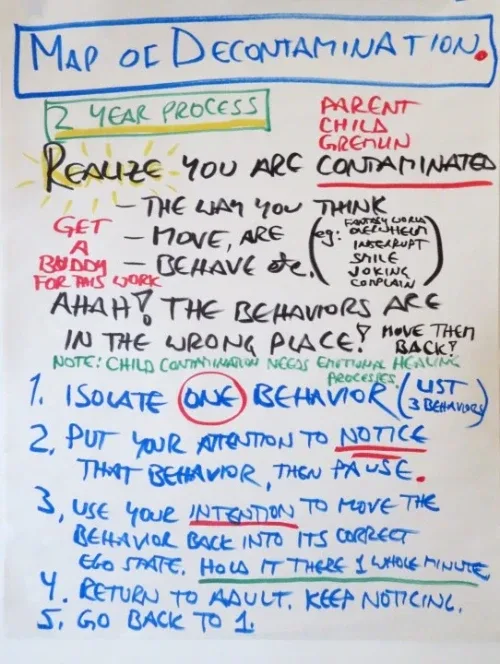 MAP OF DECONTAMINATION.
2 YEAR PROCESS
PARENT
CHILD
GREMLIN
REALIZE YOU ARE CONTAMINATED
- THE WAY YOU THINK
- MOVE, ARE
- BEHAVE etc.
(eg: FANTASY WORLD
OVERWHELM
INTERRUPT
SMILE
JOKING
COMPLAIN)
GET
A
BUDDY
FOR THIS WORK
AHAH! THE BEHAVIORS ARE
IN THE WRONG PLACE! MOVE THEM
BACK!
NOTE: CHILD CONTAMINATION NEEDS EMOTIONAL HEALING
PROCESSES.
1. ISOLATE ONE BEHAVIOR (LIST
3 BEHAVIORS)
2. PUT YOUR ATTENTION TO NOTICE
THAT BEHAVIOR, THEN PAUSE.
3. USE YOUR INTENTION TO MOVE THE
BEHAVIOR BACK INTO ITS CORRECT
EGO STATE. HOLD IT THERE 1 WHOLE MINUTE
4. RETURN TO ADULT. KEEP NOTICING.
5. GO BACK TO 1.